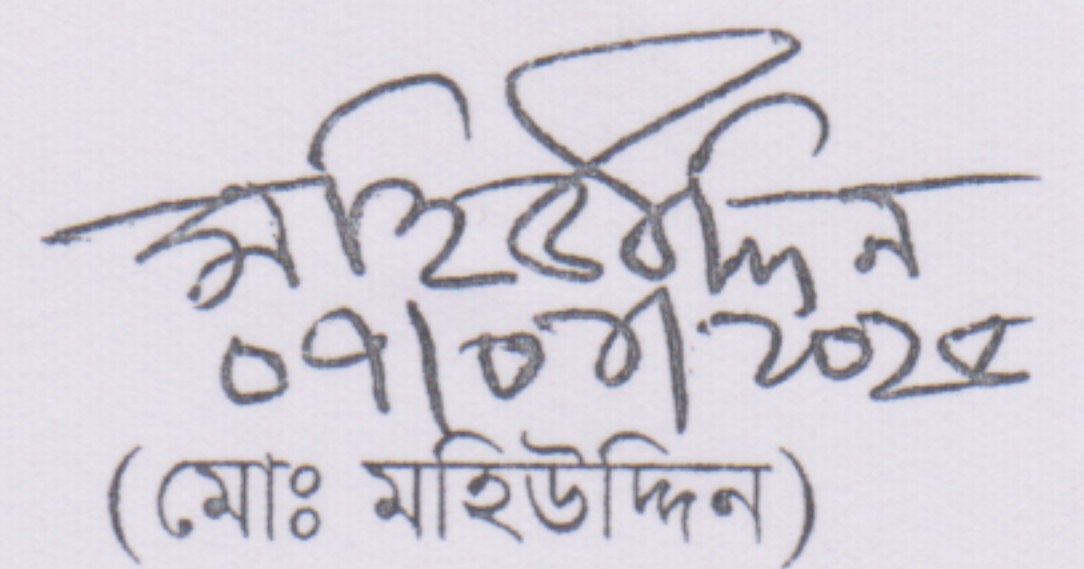 মহিউদ্দিন
০৭|০৮|২০২৫
(মোঃ মহিউদ্দিন)